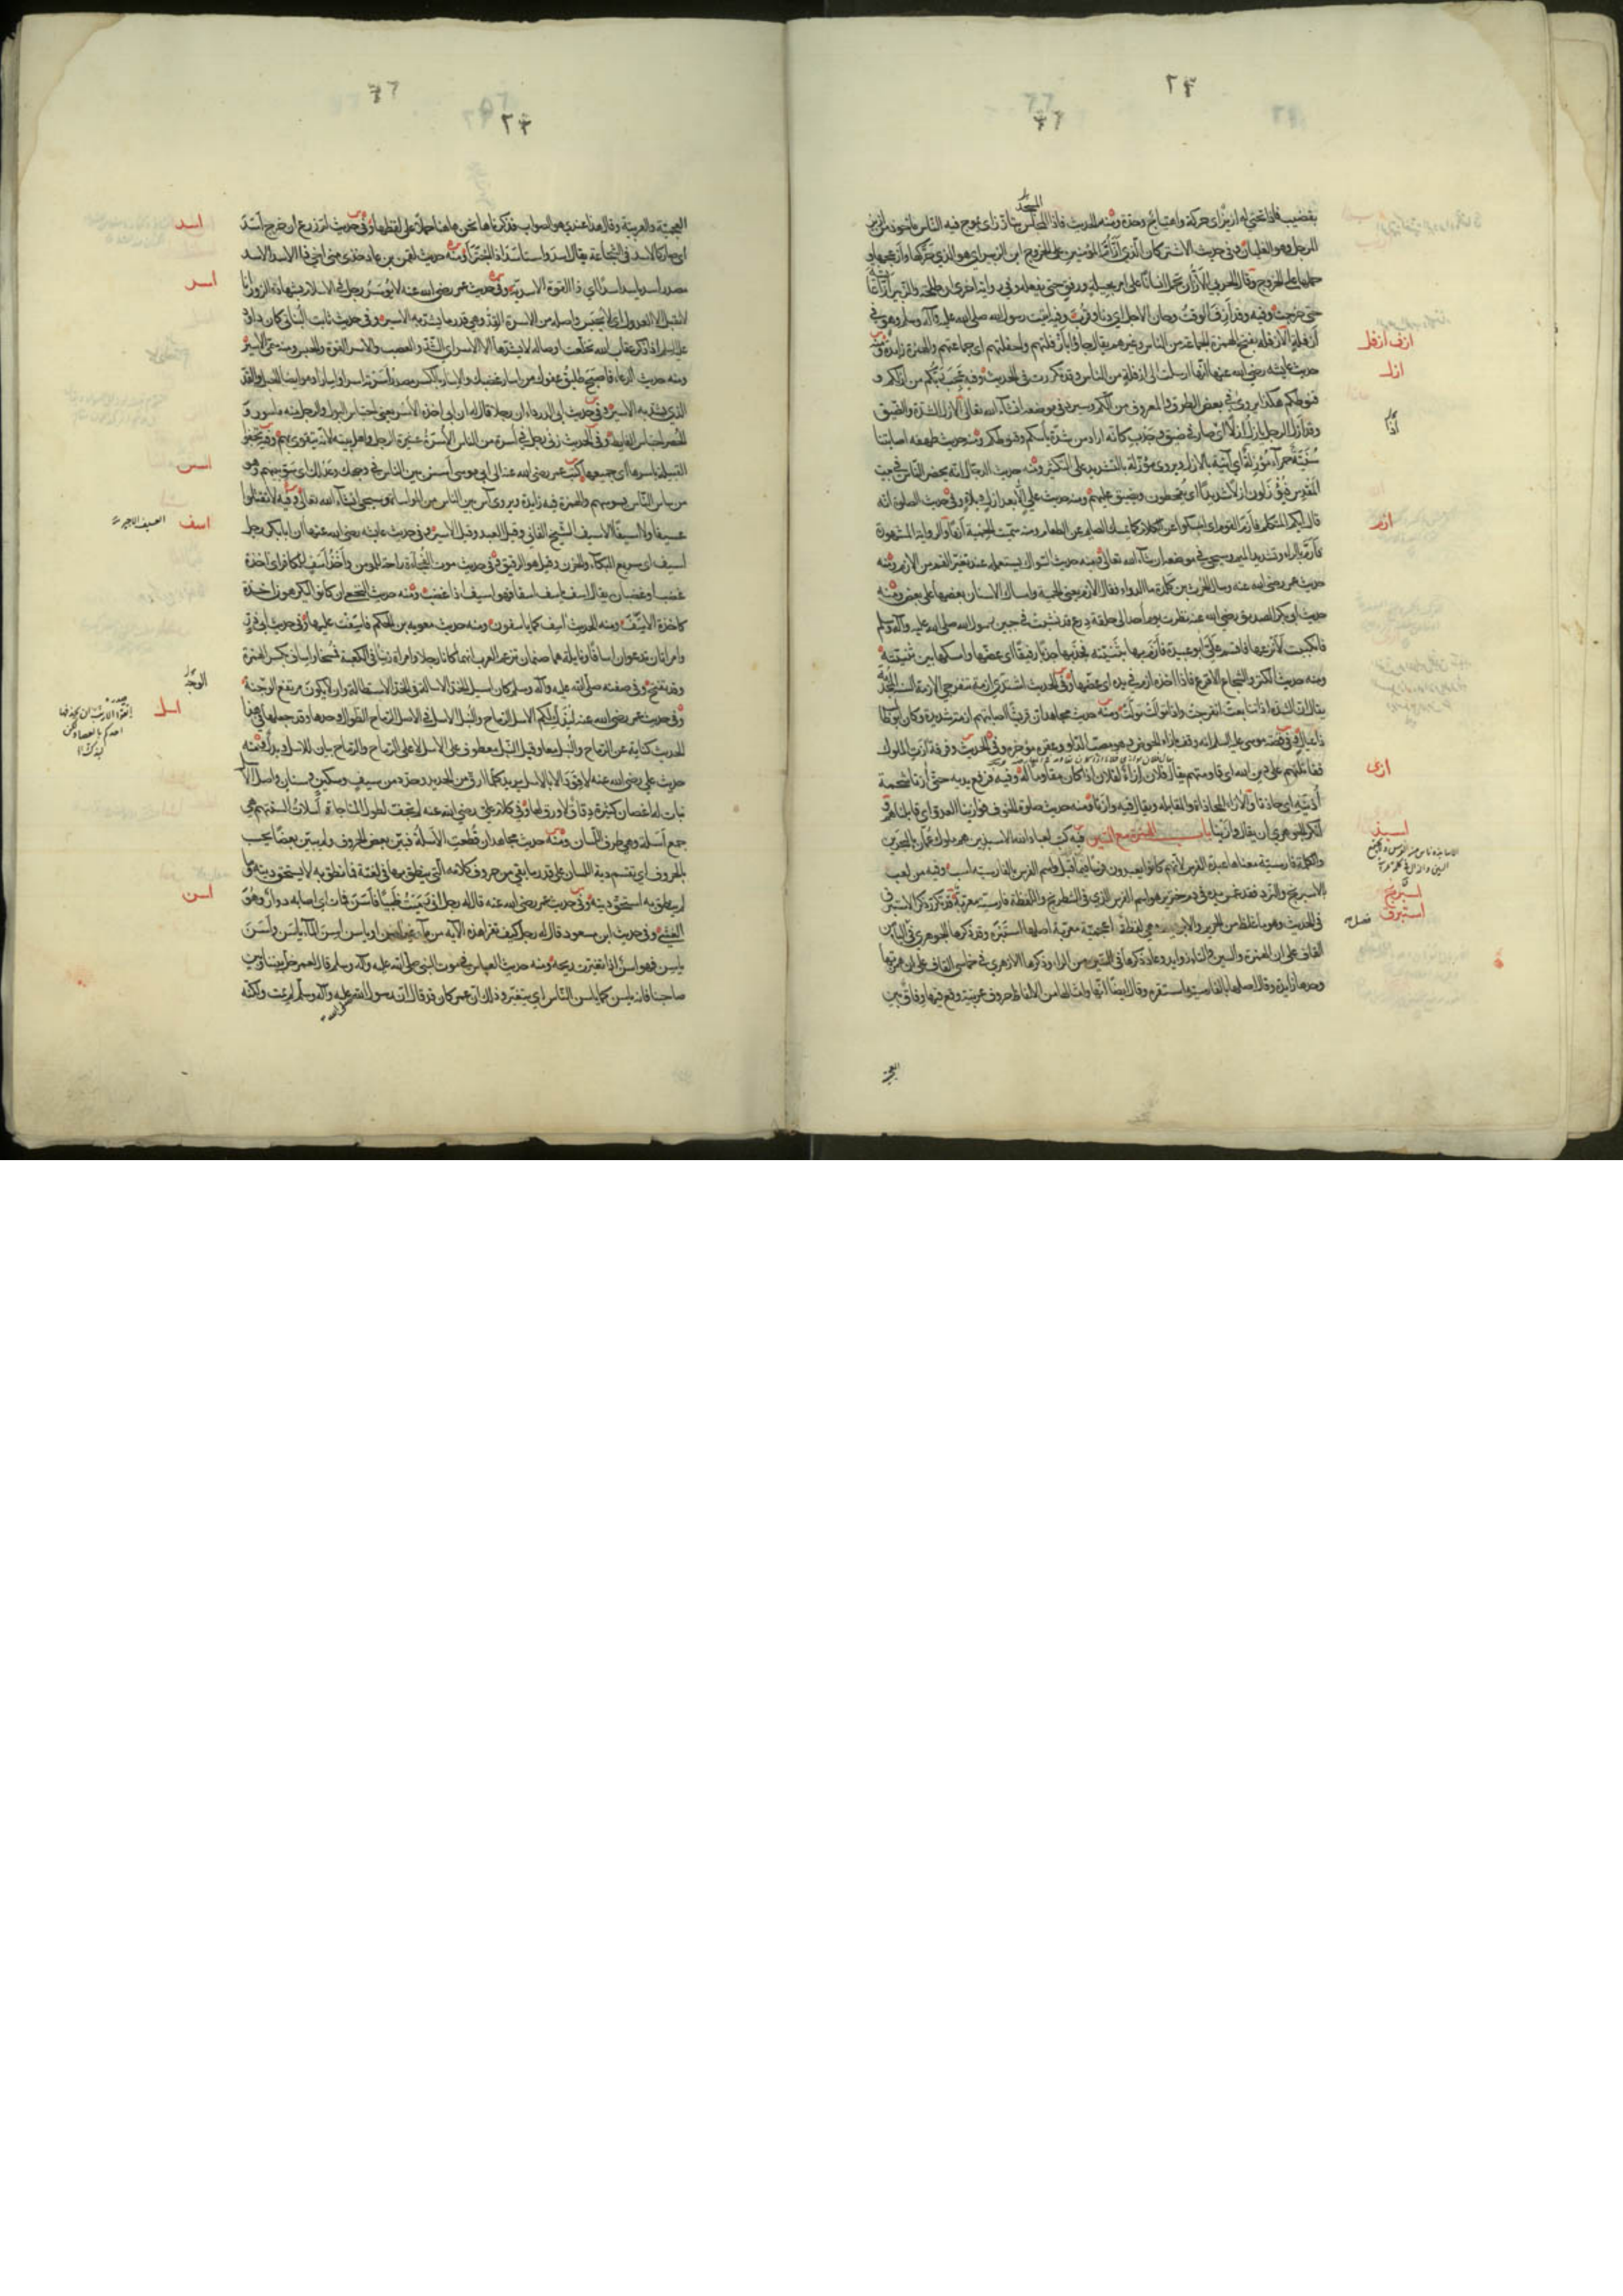 بقضيب فاذا تحتي له ازيز اي حركة واهتياج وحدة ومنه الحديث فاذا المجلس يتأزز اي يموج فيه الناس ماخوذ من ازيز
المرجل وهو الغليان وفي حديث الاشتر كان الذي أزّ أمّ المؤمنين على الخروج ابن الزبير اي هو الذي حركها وازعجها و
حملها على الخروج وقال الحربي الأزّ ان تحمل انسانا على امر بحيلة ورفق حتى يفعله وفي رواية اخرى ان طلحة والزبير أزّا عائشة
حتى خرجت وفيه وقد أزف الوقت وحان الاجل اي دنا وقرب وفيه اتيت رسول الله صلى الله عليه وآله وسلم وهو في
أزفلة الأزفلة بفتح الهمزة الجماعة من الناس وغيرهم يقال جاؤا بأزفلتهم واجفلتهم اي جماعتهم والهمزة زائدة ومنه
حديث عايشه رضي الله عنها انها ارسلت الى ازفلة من الناس وقد تكررت في الحديث وفيه عجب ربكم من ازلكم و
قنوطكم هكذا يروى في بعض الطرق والمعروف من ألّكم وسيرد في موضعه انشاء الله تعالى الازل الشدة والضيق
وقد أزل الرجل يأزل أزلا اي صار في ضيق وجدب كأنه اراد من شدة يأسكم وقنوطكم ومنه حديث طهفه اصابتنا
سنيّة حمراء مؤزلة اي آتية بالازل ويروى مؤزّلة بالتشديد على التكثير ومنه حديث الدجال انه يحصر الناس في بيت
المقدس فيؤزلون ازلا شديدا اي يقحطون ويضيق عليهم ومنه حديث علي الا بعد ازل وبلاء وفي حديث الصلوة انه
قال ايكم المتكلم فأزم القوم اي امسكوا عن الكلام كما يمسك الصايم عن الطعام ومنه سميت الحمية أزما والرواية المشهورة
فأرمّ بالراء وتشديد الميم وسيجيء في موضعه ان شاء الله تعالى ومنه حديث السواك يستعمله عند تغير الفم من الازم ومنه
حديث عمر رضي الله عنه وسأل الحرث بن كلدة ما الدواء فقال الازم يعني الحمية وامساك الاسنان بعضها على بعض ومنه
حديث ابي بكر الصديق رضي الله عنه نظرت يوم أحد الى حلقة درع قد نشبت في جبين رسول الله صلى الله عليه وآله وسلم
فانكببت لأنزعها فاقسم عليّ ابو عبيدة فأزم بها بثنيتيه فجذبها جذبا رفيقا اي عضّها وامسكها بين ثنيتيه
ومنه حديث الكنز والشجاع الاقرع فاذا اخذه ازم في يده اي عضّها وفي الحديث اشتدّي ازمة تنفرجي الازمة السنة المجدبة
يقال ان الشدة اذا تتابعت انفرجت واذا توالت تولّت ومنه حديث مجاهد ان قريشا اصابتهم ازمة شديدة وكان ابو طالب
ذا عيال وفي قصة موسى عليه السلام انه وقف بازاء الحوض وهو مصبّ الدلو وعقره مؤخره وفي الحديث وفرقة آزت الملوك
فقاتلتهم على دين الله اي قاومتهم يقال فلان ازاء لفلان اذا كان مقاوما له وفيه فرفع يديه حتى آزتا شحمة
أذنيه اي حاذتا والازاء المحاذاة والمقابلة ويقال فيه وازتا ومنه حديث صلوة الخوف فوازينا العدوّ اي قابلناهم و
انكر الجوهري ان يقال وازينا باب الهمزة مع السين فيه كتب لعباد الله الاسبذين هم ملوك عمان بالبحرين
والكلمة فارسية معناها عبدة الفرس لأنهم كانوا يعبدون فرسا فيما قيل واسم الفرس بالفارسية اسب وفيه من لعب
بالاسبرنج والنرد فقد غمس يده في دم خنزير هو اسم الفرس الذي في الشطرنج واللفظة فارسية معربة قد تكرر ذكر الاستبرق
في الحديث وهو ما غلظ من الحرير والابريسم وهي لفظة اعجمية معربة اصلها استبره وقد ذكرها الجوهري في الباء من
القاف على ان الهمزة والسين والتاء زوايد وعاد ذكرها في السين من الراء وذكرها الازهري في خماسي القاف على ان همزتها
وحدها زايدة وقال اصلها بالفارسية استفره وقال ايضا انها وامثالها من الالفاظ حروف عربية وقع فيها وفاق بين
ازف ازفل
ازل
ازم
ازى
اسبذ
اسبرنج
استبرق
العجمية والعربية وقال هذا عندي هو الصواب فذكرناها نحن هاهنا حملا على لفظها وفي حديث ام زرع ان خرج أسد
اي صار كالاسد في الشجاعة يقال اسد واستأسد اذا اجترأ ومنه حديث لقمن بن عاد خذي مني اخي ذا الاسد الاسد
مصدر اسد ياسد اسدا اي ذا القوة الاسدية وفي حديث عمر رضي الله عنه لا يؤسر رجل في الاسلام بشهادة الزور انا
لا نقبل الا العدول اي لا يحبس واصله من الاسرة القدّ وهي قدر ما يشد به الاسير وفي حديث ثابت البناني كان داود
عليه السلم اذا ذكر عقاب الله تخلعت اوصاله لا يشدها الا الاسر اي الشدّ والعصب والاسر القوة والحبس ومنه سمي الاسير
ومنه حديث الدعاء فاصبح طليق عفوك من إسار غضبك والإسار بالكسر مصدر أسرته اسرا وإسارا وهو ايضا الحبل والقدّ
الذي يشدّ به الاسير وفي حديث ابي الدرداء ان رجلا قال له ان ابي اخذه الأسر يعني احتباس البول والرجل منه مأسور و
الحُصر احتباس الغايط وفي الحديث زنى رجل في أسرة من الناس الأسرة عشيرة الرجل واهل بيته لأنه يتقوى بهم وفيه تجفو
القبيلة باسرها اي جميعها كتب عمر رضي الله عنه الى ابي موسى آس بين الناس في وجهك وعدلك اي سوّ بينهم وهو
من ساس الناس يسوسهم والهمزة فيه زايدة ويروى آس بين الناس من المواساة وسيجيء انشاء الله تعالى وفيه لا تقتلوا
عسيفا ولا اسيفا الاسيف الشيخ الفاني وقيل العبد وقيل الاسير وفي حديث عايشه رضي الله عنها ان ابا بكر رجل
اسيف اي سريع البكاء والحزن وقيل هو الرقيق وفي حديث موت الفجاءة راحة للمومن وأخذة أسف للكافر اي اخذة
غضب او غضبان يقال اسف يأسف اسفا فهو اسف اذا غضب ومنه حديث النخعي ان كانوا ليكرهون اخذة
كاخذة الاسف ومنه الحديث آسف كما ياسفون ومنه حديث معوية بن الحكم فاسفت عليها وفي حديث ابي ذر
وامراتان تدعوان اسافا ونايلة هما صنمان تزعم العرب انهما كانا رجلا وامراة زنيا في الكعبة فمسخا واساف بكسر الهمزة
وقد تفتح وفي صفته صلى الله عليه وآله وسلم كان اسيل الخد الاسالة في الخد الاستطالة وان لا يكون مرتفع الوجنة
وفي حديث عمر رضي الله عنه ليذكّ لكم الاسل الرماح والنبل الاسل في الاصل الرماح الطوال وحدها وقد جعلها في هذا
الحديث كناية عن الرماح والنبل معا وقيل النبل معطوف على الاسل لا على الرماح والرماح بيان للاسل وبدل ومنه
حديث علي رضي الله عنه لا قود الا بالاسل يريد كل ما ارقّ من الحديد وحدد من سيف وسكين وسنان واصل الاسل
نبات له اغصان كثيرة دقاق لا ورق لها وفي كلام علي رضي الله عنه لم تجفّ لطول المناجاة أسلات السنتهم هي
جمع أسلة وهي طرف اللسان ومنه حديث مجاهد ان قطعت الأسلة فبيّن بعض الحروف ولم يبيّن بعضا يحسب
بالحروف اي تقسم دية اللسان على قدر ما بقي من حروف كلامه التي ينطق بها في لغته فما نطق به لا يستحق ديته وما
لم ينطق به استحق ديته وفي حديث عمر رضي الله عنه قال له رجل اني رميت ظبيا فأسن فمات اي اصابه دوار وهو
الغشي وفي حديث ابن مسعود قال له رجل كيف تقرأ هذه الآية من ماء غير آسن او ياسن اسن الماء يأسن وأسن
ياسن فهو اسن اذا تغيرت ريحه ومنه حديث العباس في موت النبي صلى الله عليه وآله وسلم قال لعمر خلّ بيننا وبين
صاحبنا فانه ياسن كما ياسن الناس اي يتغير وذلك ان عمر كان قد قال ان رسول الله صلى الله عليه وآله وسلم لم يمت ولكنه
اسد
اسر
اسس
اسف
اسل
اسن